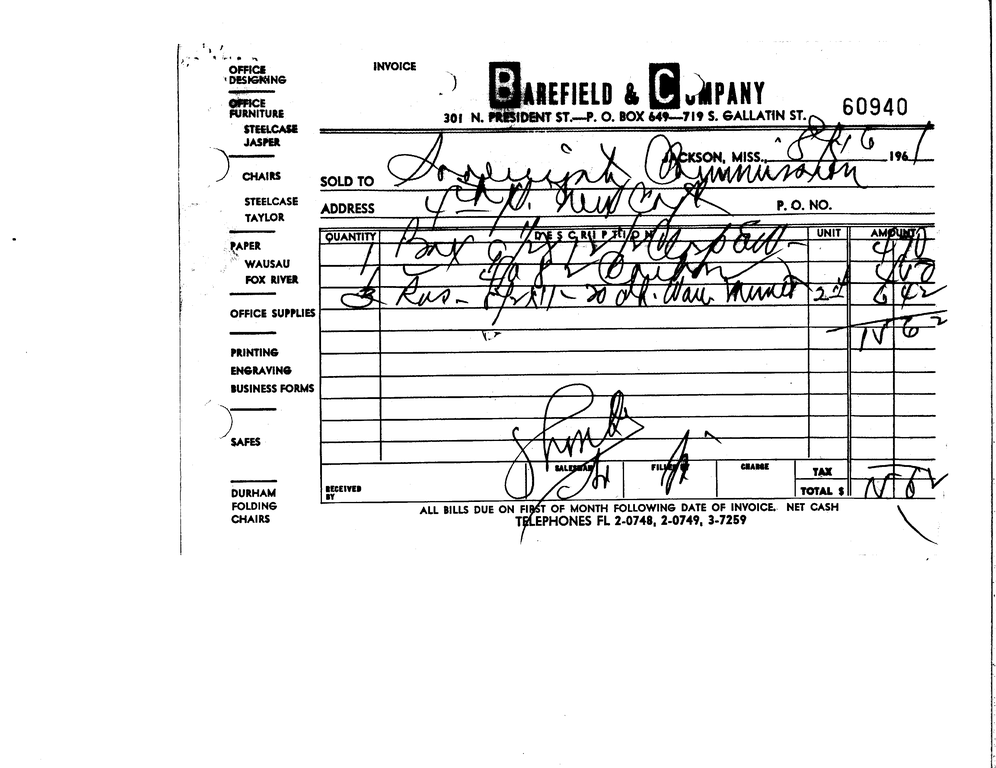 OFFICE
DESIGNING
OFFICE
FURNITURE
STEELCASE
JASPER
CHAIRS
STEELCASE
TAYLOR
PAPER
WAUSAU
FOX RIVER
OFFICE SUPPLIES
PRINTING
ENGRAVING
BUSINESS FORMS
SAFES
DURHAM
FOLDING
CHAIRS
INVOICE
BAREFIELD & COMPANY
301 N. PRESIDENT ST.—P. O. BOX 649—719 S. GALLATIN ST.
60940
JACKSON, MISS., 196
SOLD TO Sovereignty Commission
ADDRESS New Capitol P. O. NO.
QUANTITY DESCRIPTION UNIT AMOUNT
1 Box
3 Rms - 8½x11 - 20 6 42
SALESMAN FILLED BY CHARGE TAX
RECEIVED
BY
TOTAL $
ALL BILLS DUE ON FIRST OF MONTH FOLLOWING DATE OF INVOICE. NET CASH
TELEPHONES FL 2-0748, 2-0749, 3-7259